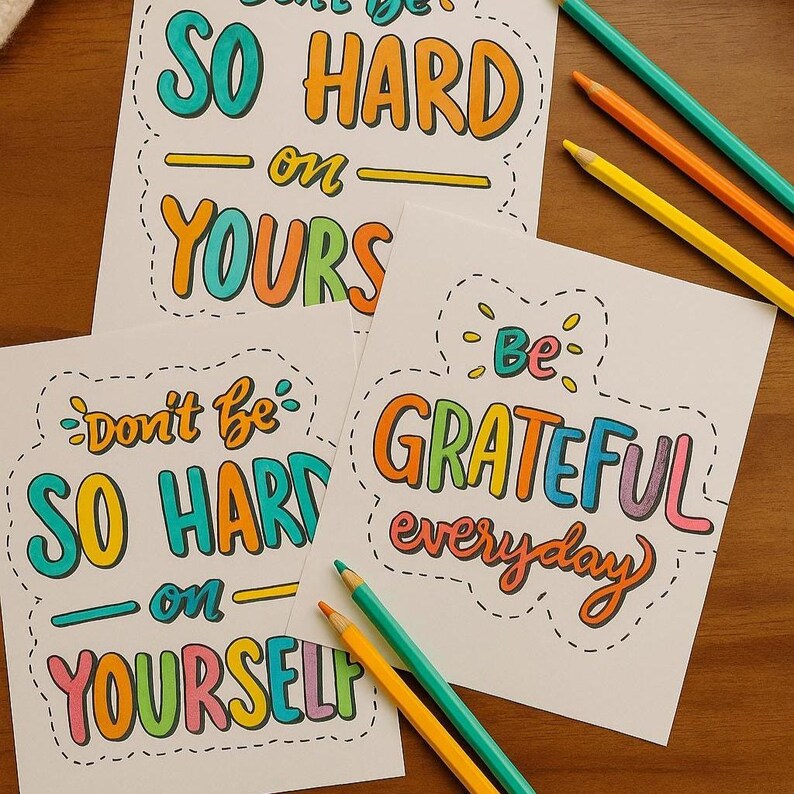 Don't be
SO HARD
on
YOURS
Don't be
SO HARD
on
YOURSELF
Be
GRATEFUL
everyday